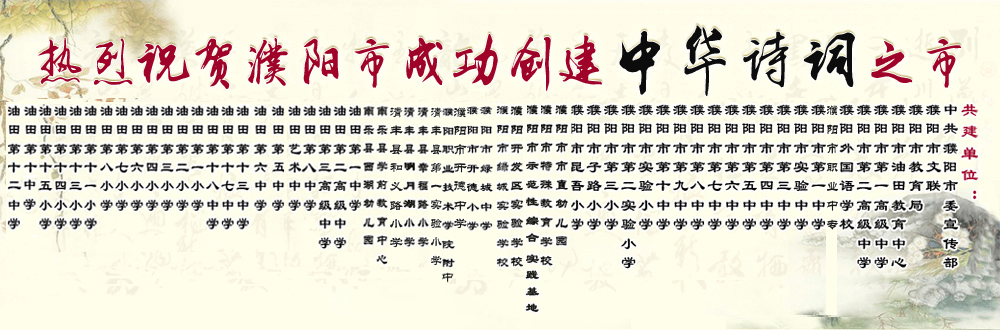 热烈祝贺濮阳市成功创建中华诗词之市
共建单位：
中共濮阳市委宣传部
濮阳市文联
濮阳市教育局
濮阳市油田教育中心
濮阳市第一高级中学
濮阳市第二高级中学
濮阳外国语学校
濮阳市职业中专
濮阳市第一中学
濮阳市实验中学
濮阳市第三中学
濮阳市第四中学
濮阳市第五中学
濮阳市第六中学
濮阳市第七中学
濮阳市第八中学
濮阳市第九中学
濮阳市第十中学
濮阳市实验小学
濮阳市第二实验小学
濮阳市第三小学
濮阳市子路小学
濮阳市昆吾小学
濮阳市直幼儿园
濮阳市特殊教育学校
濮阳市示范性综合实践基地
濮阳开发区实验学校
濮阳市绿城实验学校
濮阳市绿城中学
濮阳市开德小学
濮阳市开德中学
濮阳职业技术学院附中
清丰县第一实验小学
清丰县路小学
清丰县明月湖小学
清丰县和义路小学
南乐县学前教育中心
南乐县西湖幼儿园
油田第一中学
油田第二高级中学
油田第三高级中学
油田第八中学
油田艺术中学
油田第五中学
油田第六中学
油田第十三中学
油田第十七中学
油田第十八中学
油田第一小学
油田第二小学
油田第三小学
油田第四小学
油田第六小学
油田第七小学
油田第小学
油田第十一小学
油田第十三小学
油田第十四小学
油田第十五小学
油田第中学
油田第十二中学